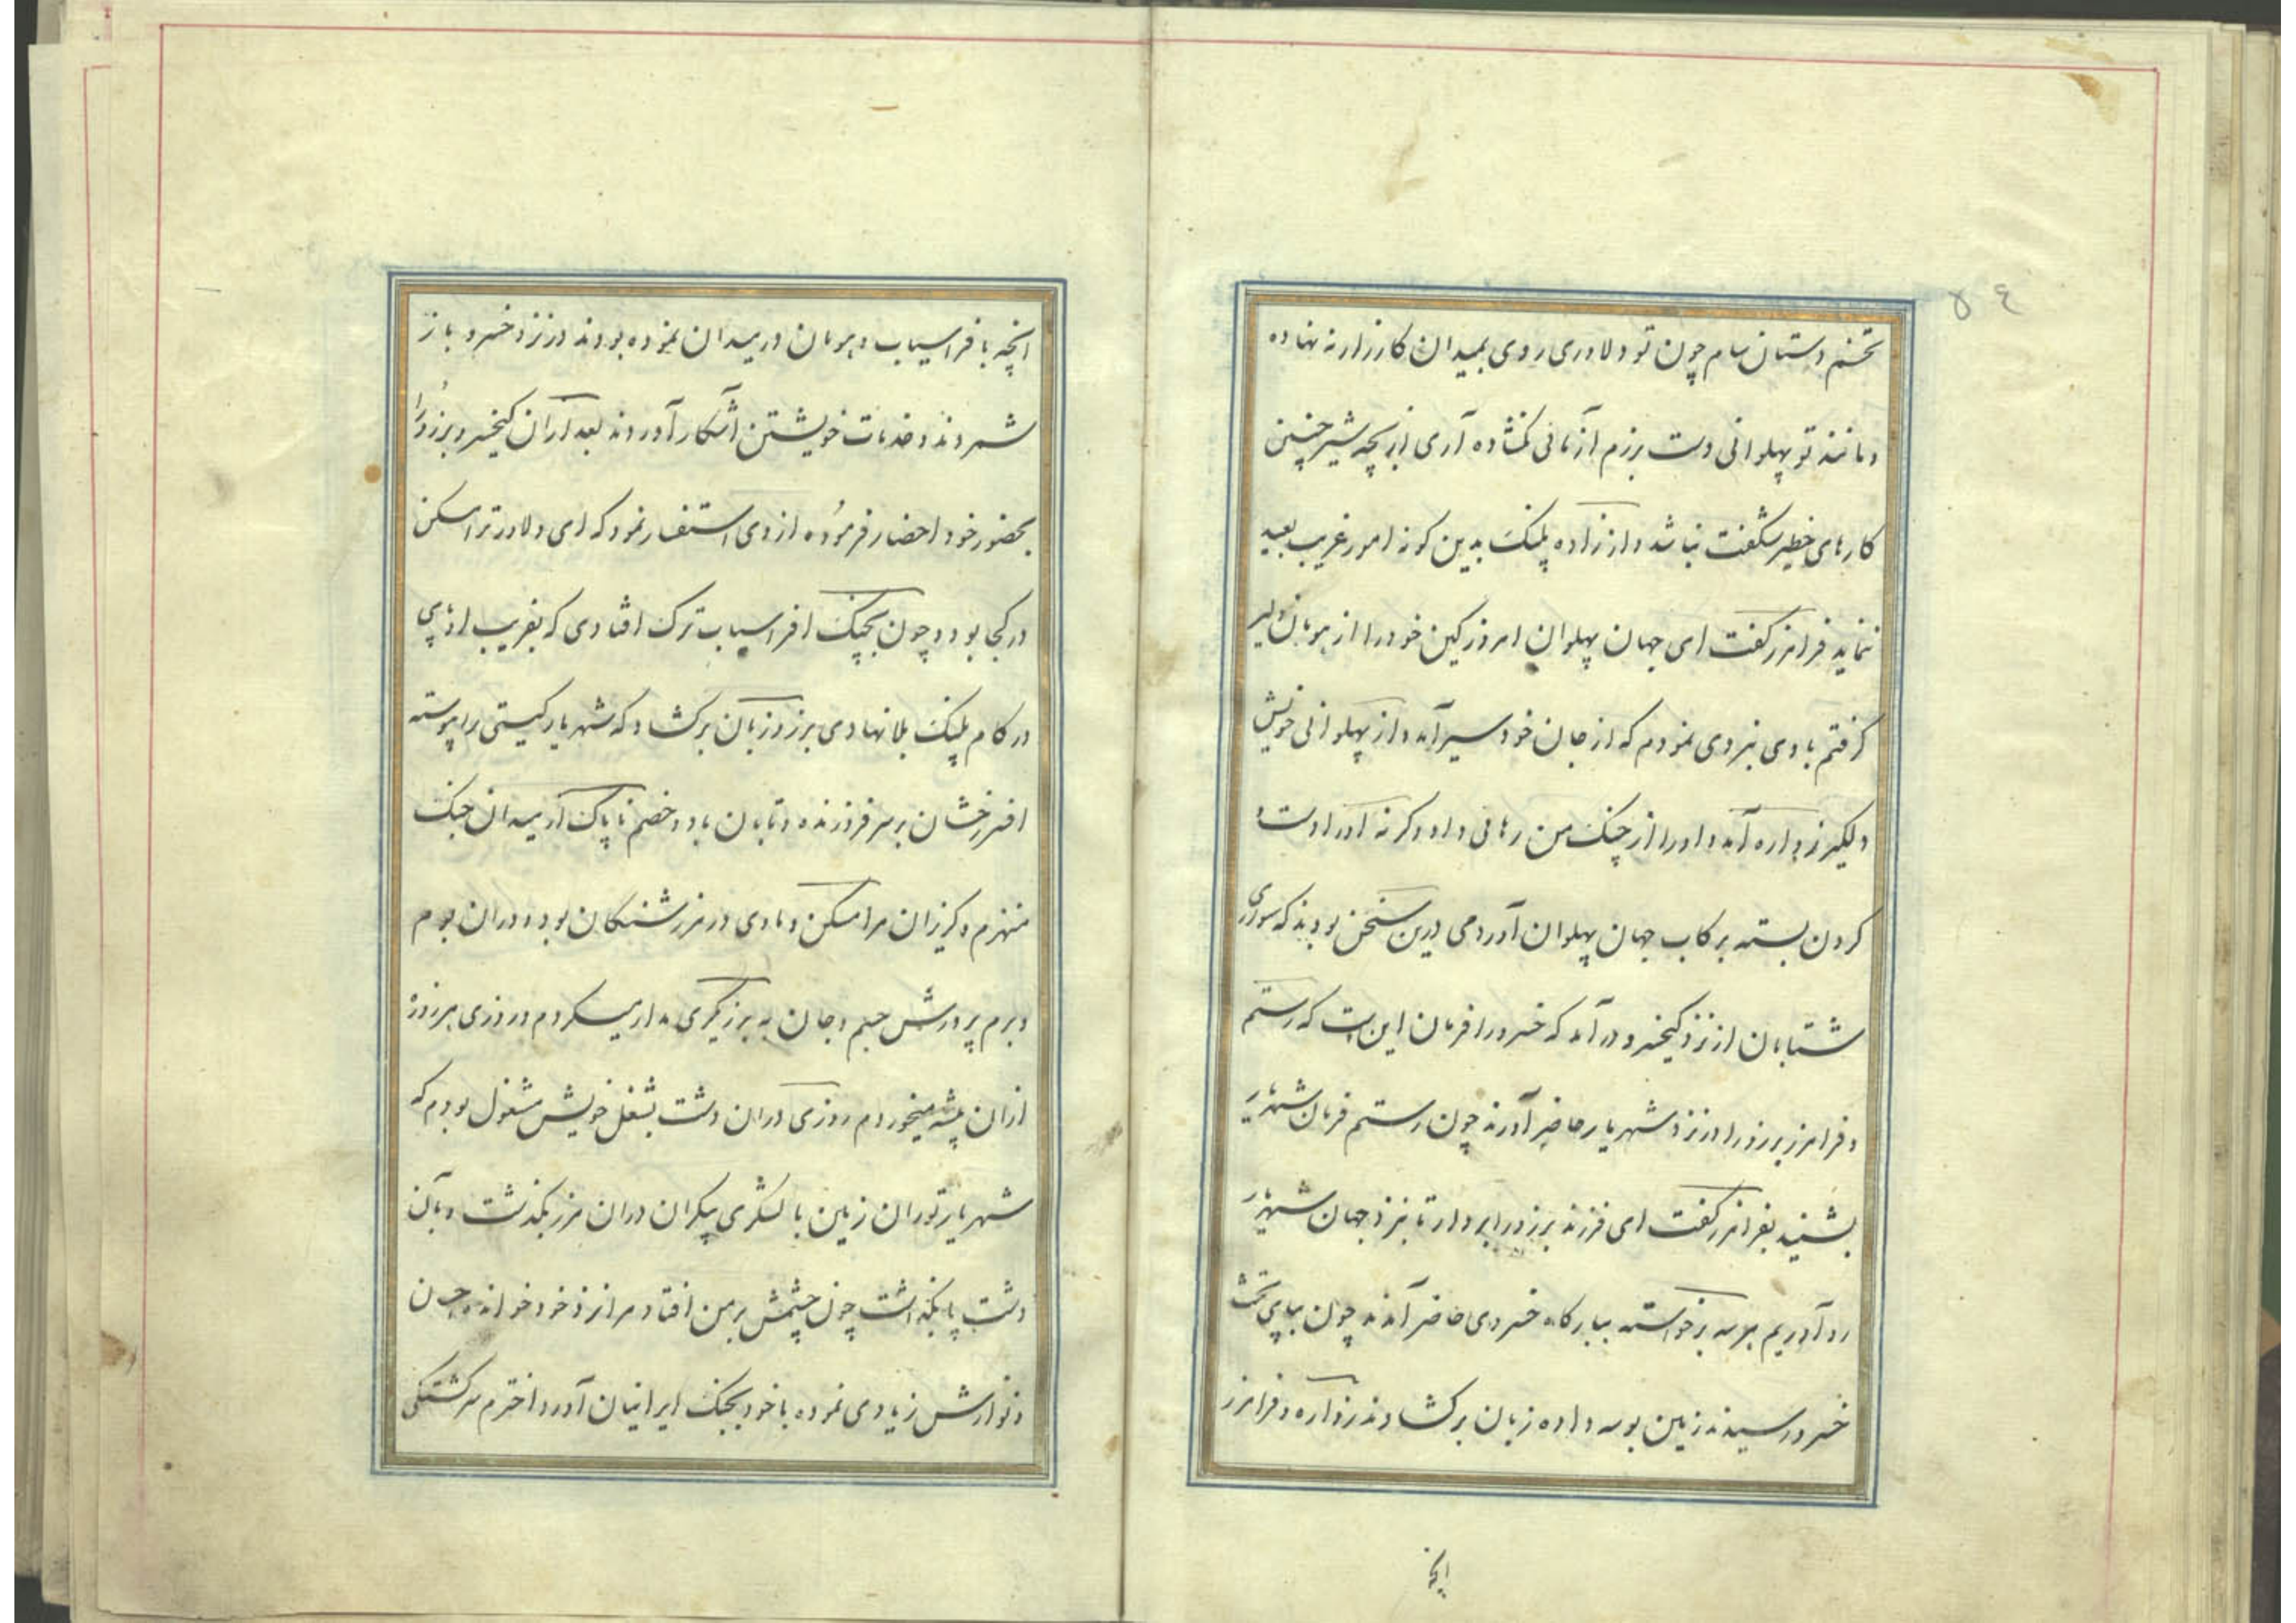 ٥٤
تخم دستان سام چون تو دلاوری روی بمیدان کارزار نه نهاده
و مانند تو پهلوانی دست برزم آزمائی نگشاده آری از بچه شیر چنین
کارهای خطیر شکفت نباشد و از زاده پلنک بدین کونه امور غریب بعید
ننماید فرامرز کفت ای جهان پهلوان امروز کین خود را از هومان دلیر
کرفتم با وی نبردی نمودم که از جان خود سیر آمد و از پهلوانی خویش
دلکیر زواره آمد و او را از چنک من رهائی داد وکرنه او را دست و
کردن بسته برکاب جهان پهلوان آوردمی درین سخن بودند که سواری
شتابان از نزد کیخسرو در آمد که خسرو را فرمان این است که رستم
و فرامرز برزو را در نزد شهریار حاضر آورند چون رستم فرمان شهریار
بشنید بفرامرز کفت ای فرزند برزو را بردار تا بنزد جهان شهریار
رو آوریم هر سه برخواسته ببارکاه خسروی حاضر آمدند چون بپای تخت
خسرو رسیدند زمین بوسه داده زبان برکشادند زواره و فرامرز
انچه
انچه با فراسیاب و هومان در میدان نموده بودند در نزد خسرو باز
شمردند و خدمات خویشتن آشکار آوردند بعد از آن کیخسرو برزو را
بحضور خود احضار فرموده از وی استفسار نمود که ای دلاور ترا مسکن
در کجا بود و چون بچنک افراسیاب ترک افتادی که بفریب او پای
در کام پلنک بلا نهادی برزو زبان برکشاد که شهریار کیتی را پیوسته
افسر رخشان بر سر فروزنده و تابان باد و خصم ناپاک از میدان جنک
منهزم و کریزان مرا مسکن و ماوی در مرز شنکان بود و در ان بوم
و برم پرورش جسم و جان به برزیکری مدار میکردم و روزی هر روزه
از ان پیشه میخوردم روزی در ان دشت بشغل خویش مشغول بودم که
شهریار توران زمین با لشکری بیکران در ان مرز بکذشت و بآن
دشت پا بکذاشت چون چشمش بر من افتاد مرا نزد خود خوانده چون
و نوازش زیادی نموده با خود بجنک ایرانیان آورد اخترم سرکشتکی